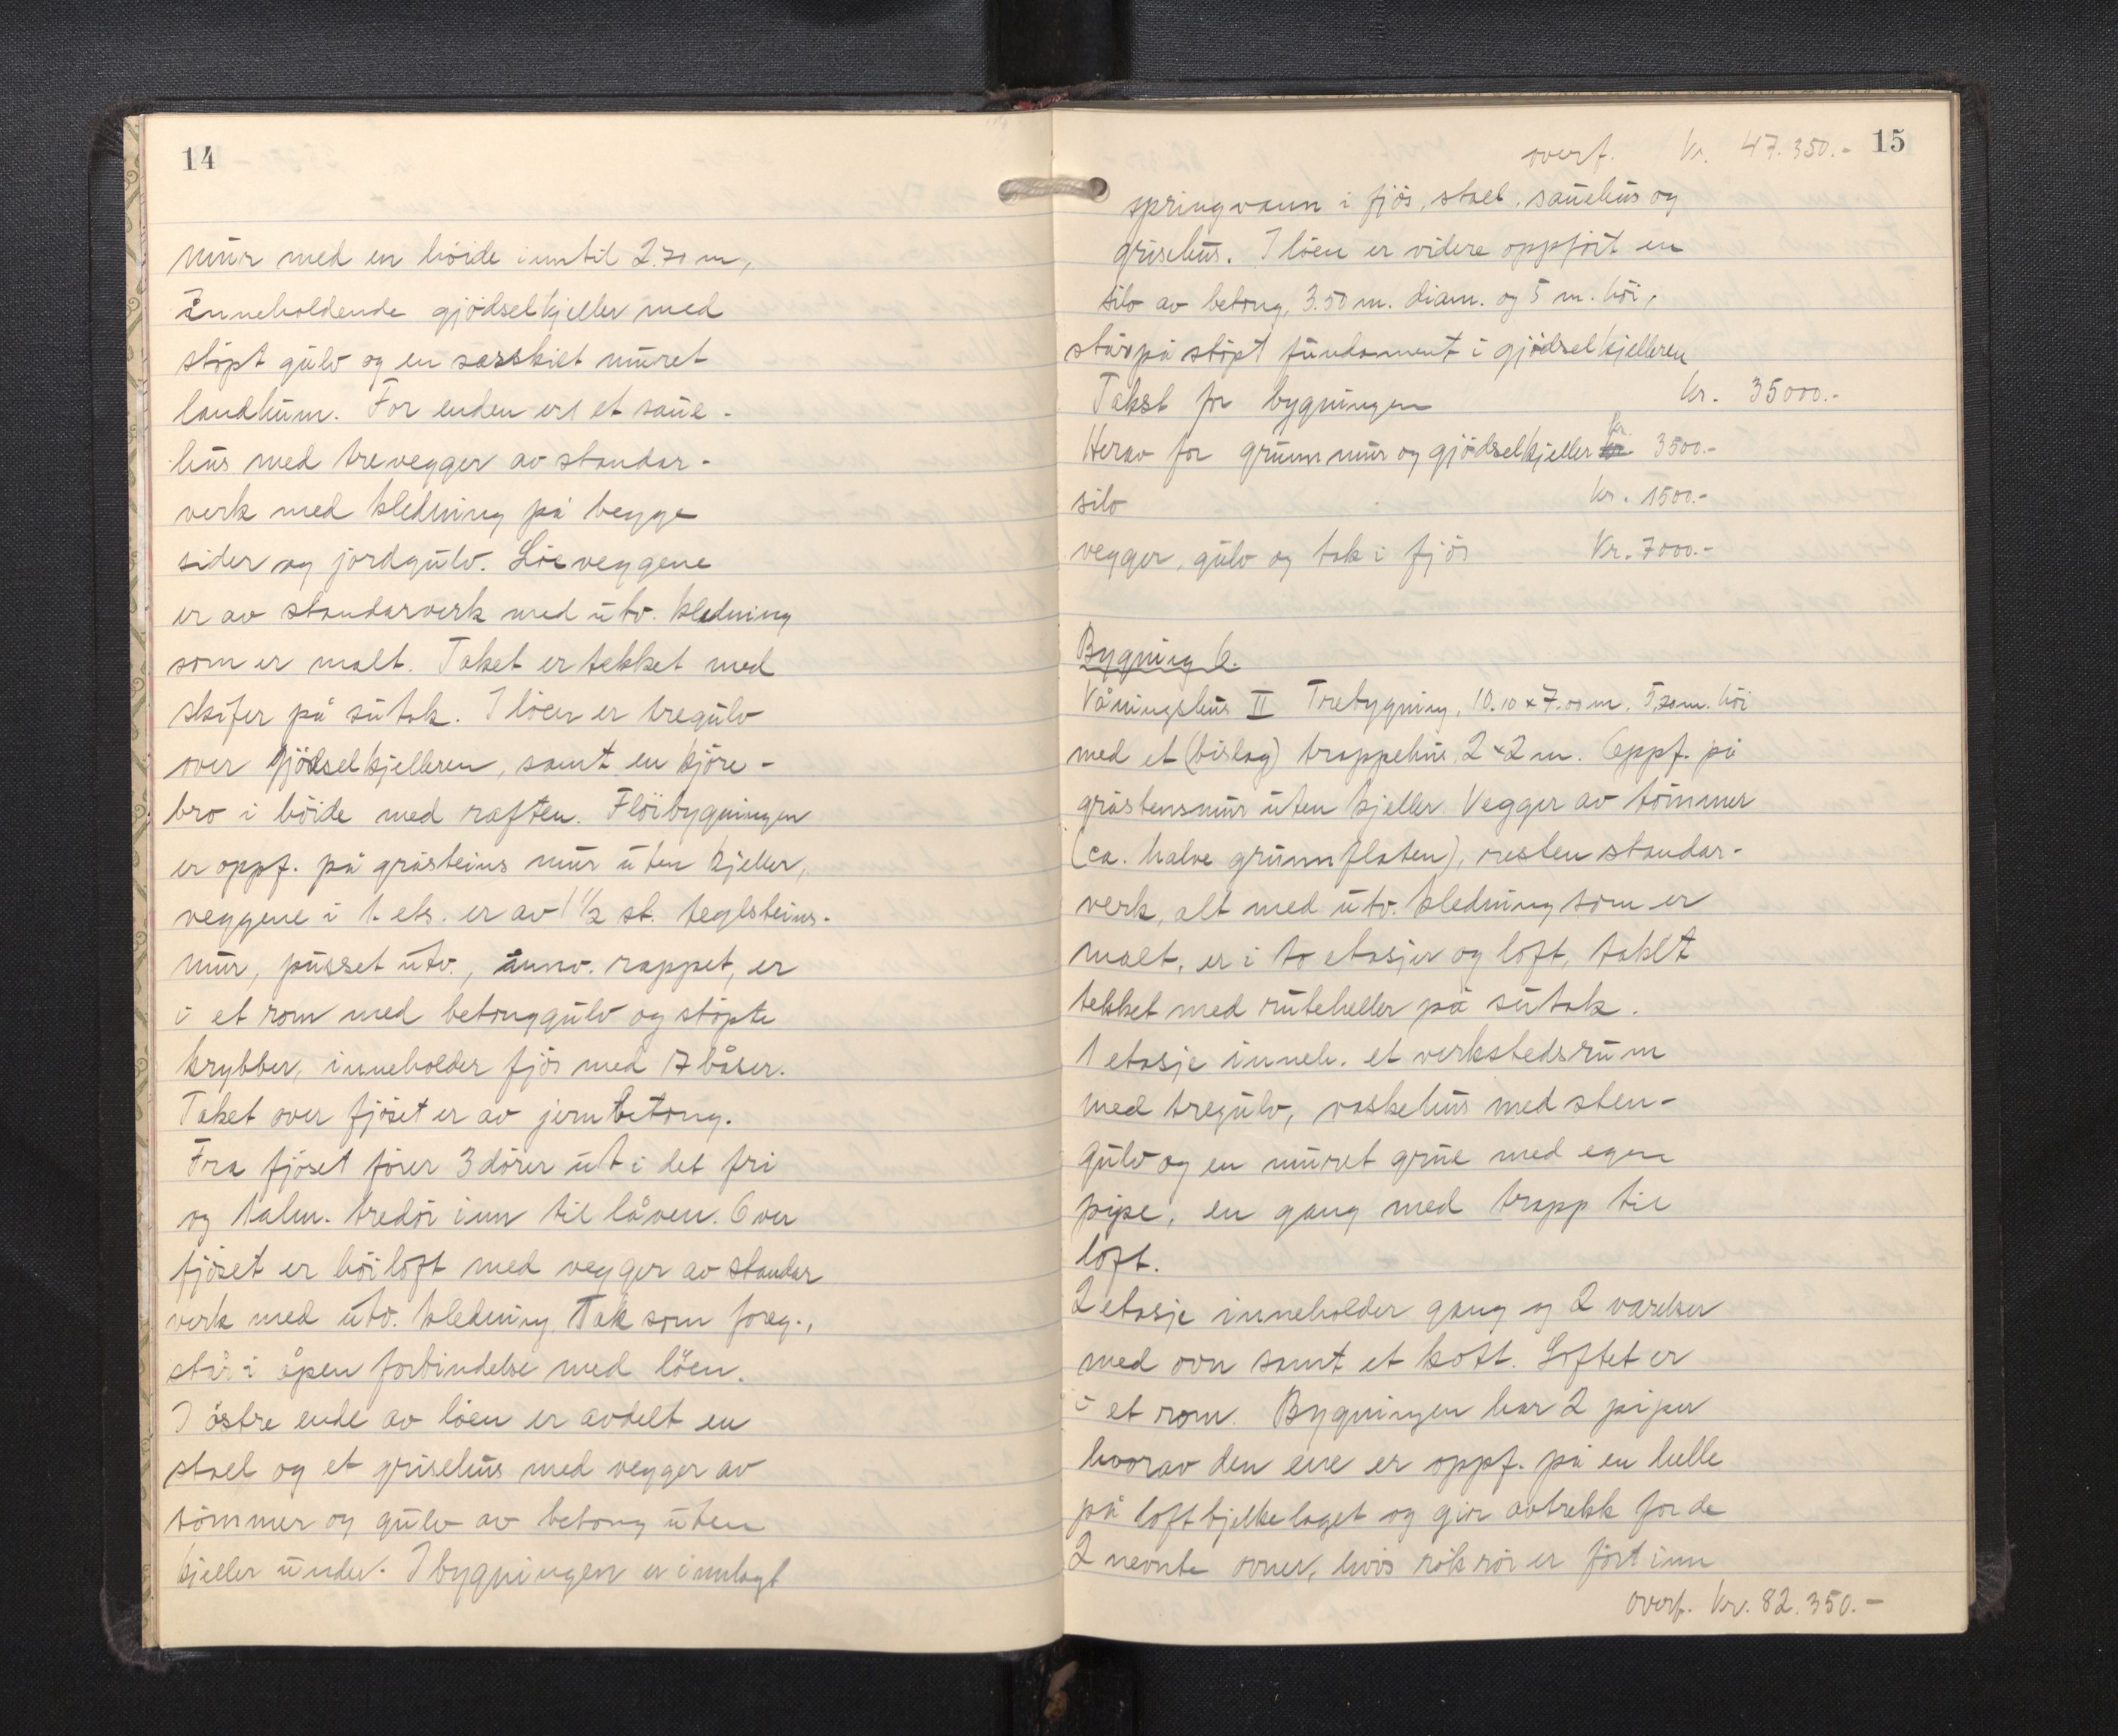 14
mur med en höide inntil 2.70 m,
inneholdende gjödselkjeller med
stöpt gulv og en særskilt muret
landkum. For enden er et saue-
hus med trevegger av stender-
verk med kledning på begge
sider og jordgulv. Löeveggene
er av stenderverk med utv. kledning
som er malt. Taket er tekket med
skifer på sutak. I löen er tregulv
over gjödselkjelleren, samt en kjöre-
bro i höide med raften. Flöibygningen
er oppf. på gråsteins mur uten kjeller,
veggene i 1. ets. er av 1 1/2 st. teglsteins-
mur, pusset utv., innv. rappet, er
i et rom med betonggulv og stöpte
krybber, inneholder fjös med 17 båser.
Taket over fjöset er av jernbetong.
Fra fjöset förer 3 dörer ut i det fri
og 1 alm. tredör inn til låven. Over
fjöset er höiloft med vegger av stender
verk med utv. kledning. Tak som foreg.,
står i åpen forbindelse med löen.
I östre ende av löen er avdelt en
stall og et grisehus med vegger av
tömmer og gulv av betong uten
kjeller under. I bygningen er innlagt
15
overf. Kr. 47.350.-
springvann i fjös, stall, sauehus og
grisehus. I löen er videre oppfört en
silo av betong, 3.50 m. diam. og 5 m. höi,
står på stöpt fundament i gjödselkjelleren
Takst for bygningen Kr. 35000.-
Herav for grunnmur og gjödselkjeller kr. 3500.-
silo kr. 1500.-
vegger, gulv og tak i fjös Kr. 7000.-
Bygning 6.
Våningshus II Trebygning, 10.10 x 7.00 m. 5,20 m. höi
med et (bislag) trappehus 2 x 2 m. Oppf. på
gråstensmur uten kjeller. Vegger av tömmer
(ca. halve grunnflaten), resten stender-
verk, alt med utv. kledning som er
malt, er i to etasjer og loft, taket
tekket med ruteheller på sutak.
1 etasje inneh. et verkstedsrum
med tregulv, vaskehus med sten-
gulv og en muret grue med egen
pipe, en gang med trapp til
loft.
2 etasje inneholder gang og 2 værelser
med ovn samt et kott. Loftet er
i et rom. Bygningen har 2 piper
hvorav den ene er oppf. på en helle
på loftbjelkelaget og gir avtrekk for de
2 nevnte ovner, hvis rökrör er fört inn
overf. Kr. 82.350.-